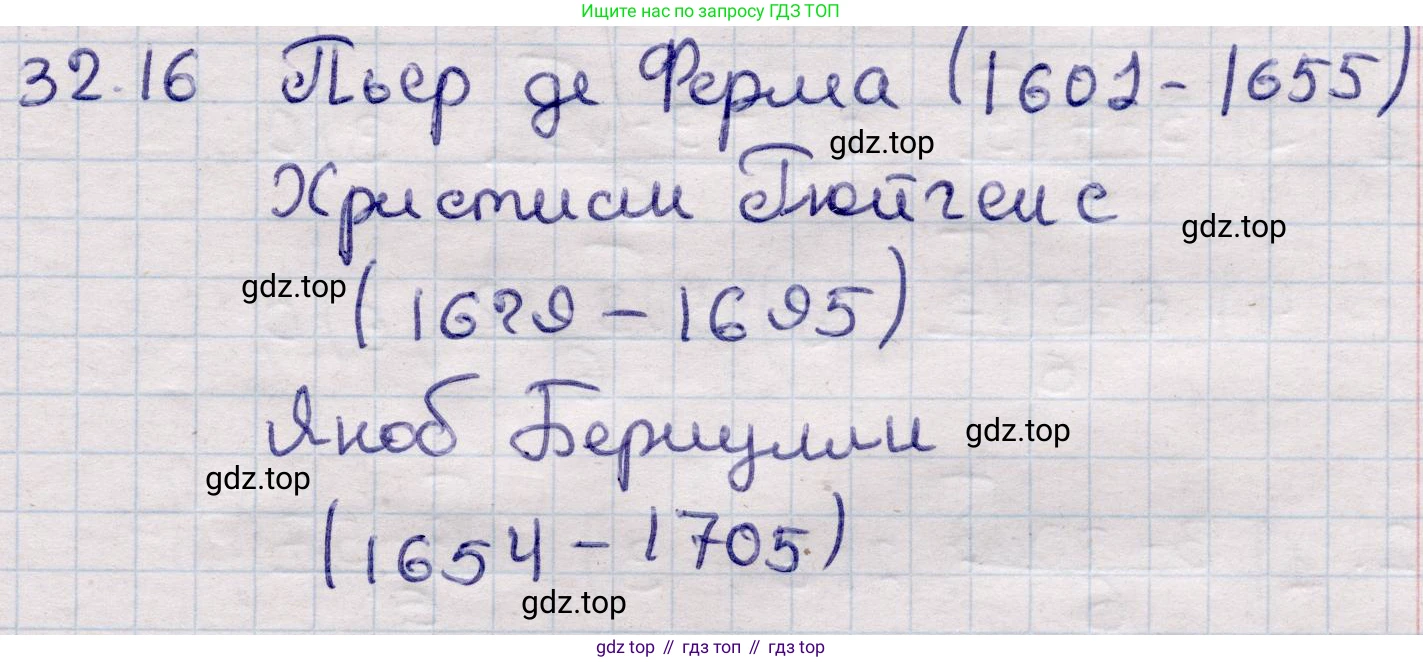 Ищите нас по запросу ГДЗ ТОП
32.16 Пьер де Ферма (1601 - 1655)
gdz.top
Христиан Гюйгенс
gdz.top
gdz.top
(1629 - 1695)
Якоб Бернулли
gdz.top
gdz.top
(1654 - 1705)
gdz.top
gdz top // гдз топ // гдз top